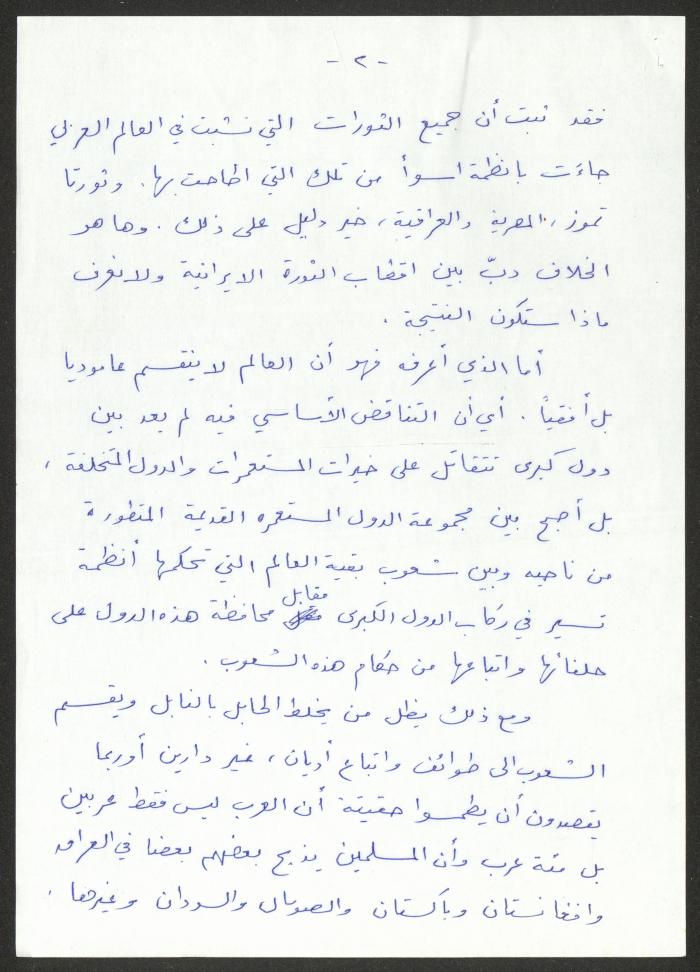 - ٢ -
فقد ثبت أن جميع الثورات التي نشبت في العالم العربي
جاءَت بانظمة اسوأ من تلك التي اطاحت بها. وثورتا
تموز، المصرية والعراقية، خير دليل على ذلك. وها هو
الخلاف دبّ بين اقطاب الثورة الايرانية ولا نعرف
ماذا ستكون النتيجة.
أما الذي أعرفه فهو أن العالم لا ينقسم عاموديا
بل أفقياً. أي أن التناقض الأساسي فيه لم يعد بين
دول كبرى تتقاتل على خيرات المستعمرات والدول المتخلفة،
بل أصبح بين مجموعة الدول المستعمره القديمة المتطورة
من ناحيه وبين شعوب بقية العالم التي تحكمها أنظمة
تسير في ركاب الدول الكبرى مقابل محافظة هذه الدول على
حلفائها واتباعها من حكام هذه الشعوب.
ومع ذلك يظل من يخلط الحابل بالنابل ويقسم
الشعوب الى طوائف واتباع أديان، غير دارين أو ربما
يقصدون أن يطمسوا حقيقة أن العرب ليس فقط عربين
بل مئة عرب وأن المسلمين يذبح بعضهم بعضا في العراق
وافغانستان وباكستان والصومال والسودان وغيرها.